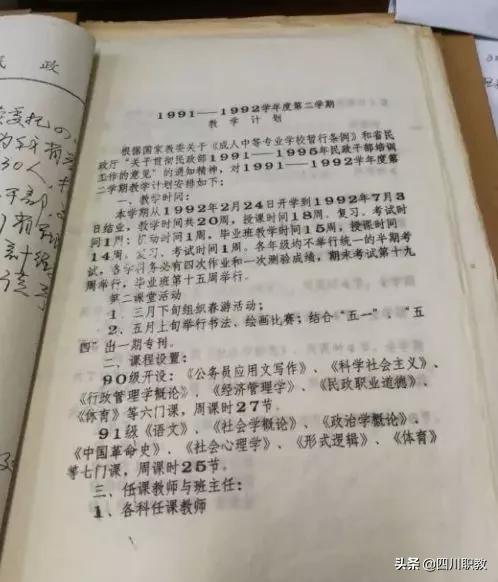 民 政
1991——1992学年度第二学期
教 学 计 划
根据国家教委关于《成人中等专业学校暂行条例》和省民
政厅“关于贯彻民政部1991—1995年民政干部培训
工作的意见”的通知精神，对1991——1992学年度第
二学期教学计划安排如下：
一、教学时间：
本学期从1992年2月24日开学到1992年7月3
日结业，教学时间共20周，授课时间18周。复习、考试时
间1周；机动时间1周。毕业班教学时间15周，授课时间
14周。复习、考试时间1周。各年级均不举行统一的半期考
试，各学科务必有四次作业和一次测验成绩，期末考试第十九
周举行，毕业班第十五周举行。
第二课堂活动
1、三月下旬组织春游活动；
2、五月上旬举行书法、绘画比赛；结合“五一”、“五
四”出一期专刊。
二、课程设置：
90级开设：《公务员应用文写作》、《科学社会主义》、
《行政管理学概论》、《经济管理学》、《民政职业道德》、
《体育》等六门课，周课时27节。
91级《语文》、《社会学概论》、《政治学概论》、
《中国革命史》、《社会心理学》、《形式逻辑》、《体育》
等七门课，周课时25节。
三、任课教师与班主任：
1、各科任课教师
头条 @四川职教